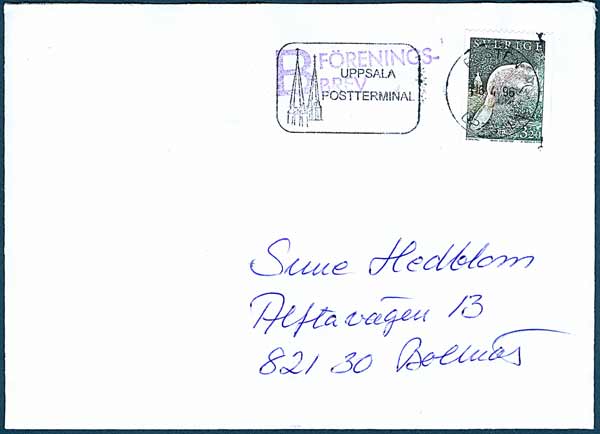 B FÖRENINGS-
BREV
UPPSALA
POSTTERMINAL
SVERIGE
18.4.96
Sune Hedblom
Alftavägen 13
821 30 Bollnäs